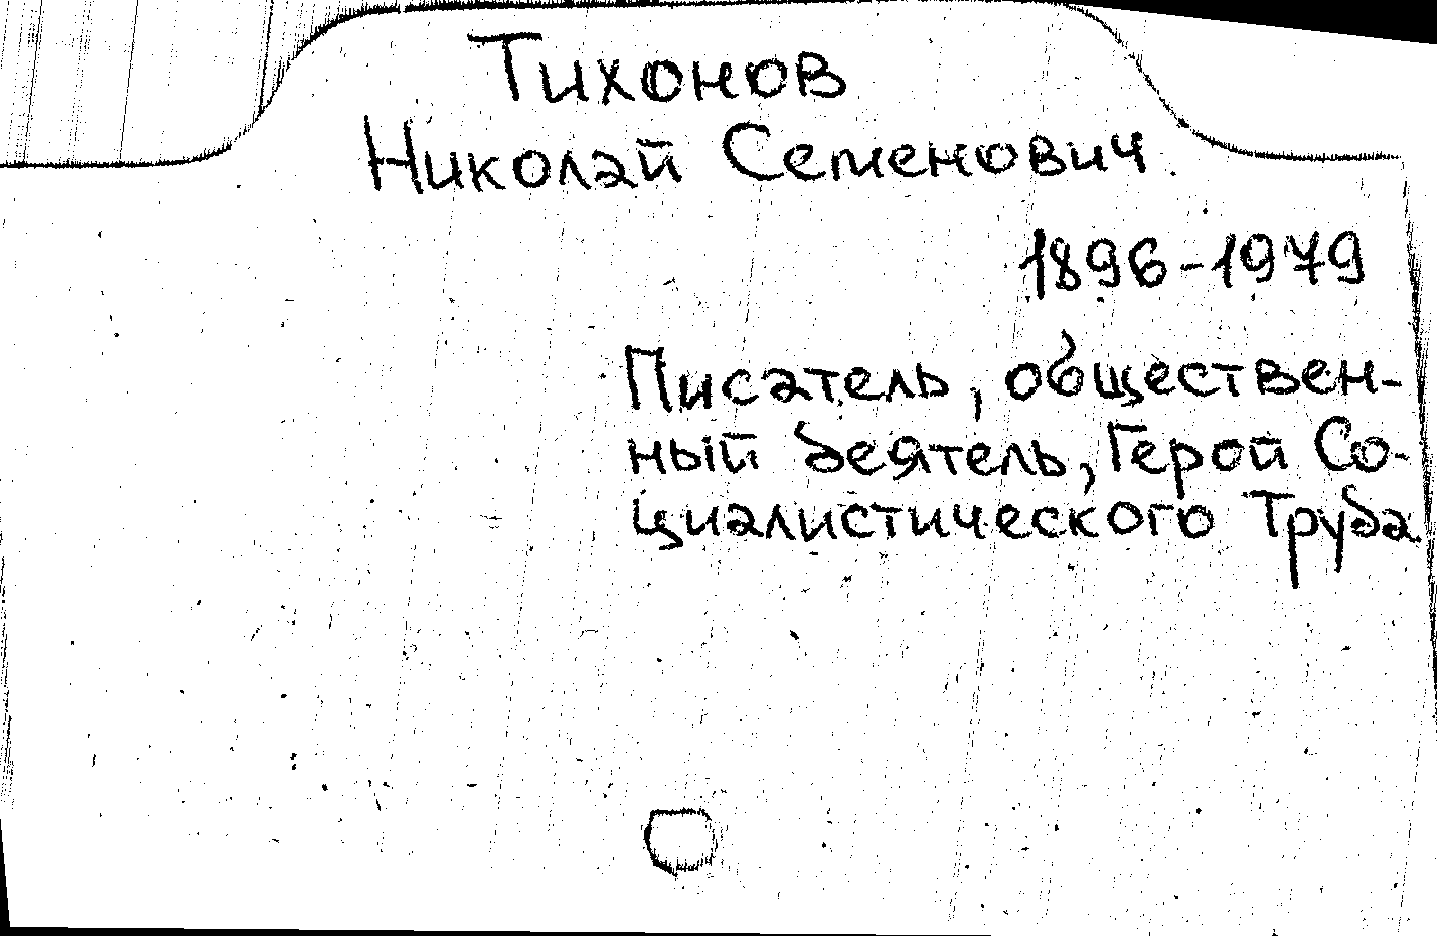 Тихонов
Николай Семенович
1896-1979
Писатель, обществен-
ный деятель, Герой Со-
циалистического Труда